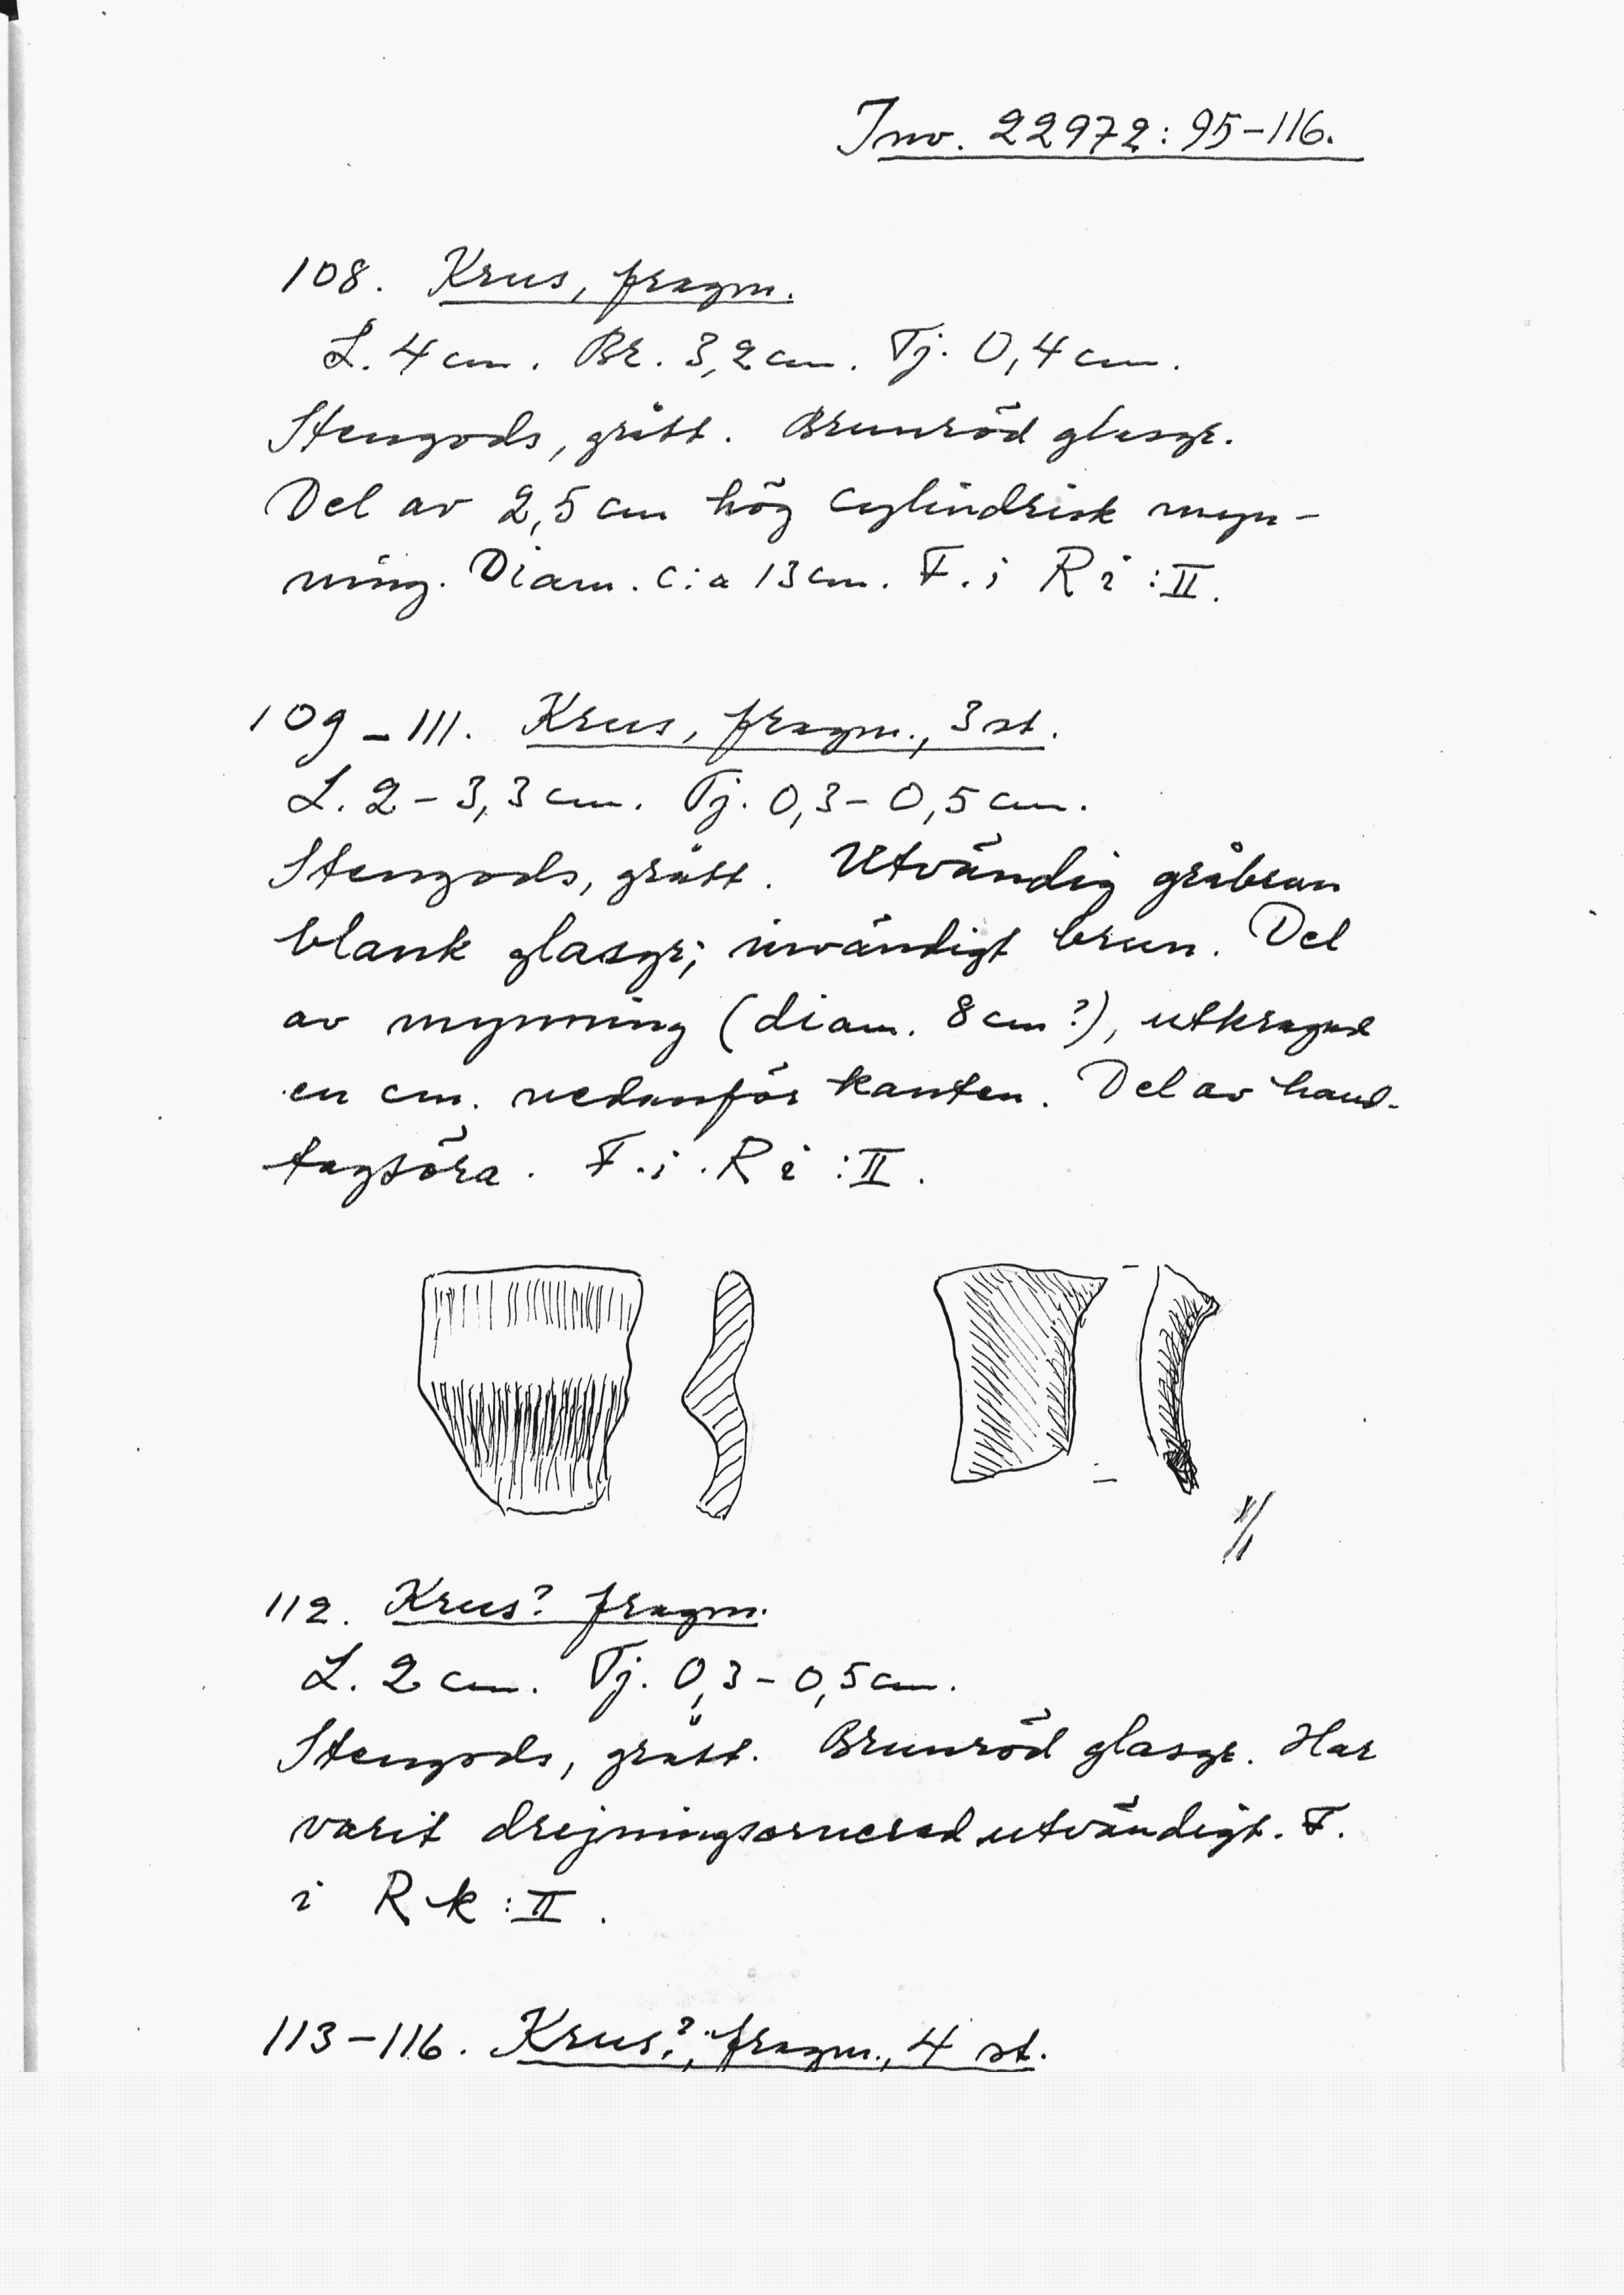 Inv. 22972: 95-116.
108. Krus, fragm.
L. 4 cm. Br. 3,2 cm. Tj. 0,4 cm.
Stengods, grått. Brunröd glasyr.
Del av 2,5 cm hög cylindrisk myn-
ning. Diam. c:a 13 cm. F. i Ri:II.
109-111. Krus, fragm., 3 st.
L. 2-3,3 cm. Tj. 0,3-0,5 cm.
Stengods, grått. Utvändig gråbrun
blank glasyr; invändigt brun. Del
av mynning (diam. 8 cm?), utkragad
en cm. nedanför kanten. Del av hand-
tagsöra. F. i. Ri:II.
1/1
112. Krus? fragm.
L. 2 cm. Tj. 0,3-0,5 cm.
Stengods, grått. Brunröd glasyr. Har
varit drejningsornerad utvändigt. F.
i Rk:II.
113-116. Krus?, fragm., 4 st.